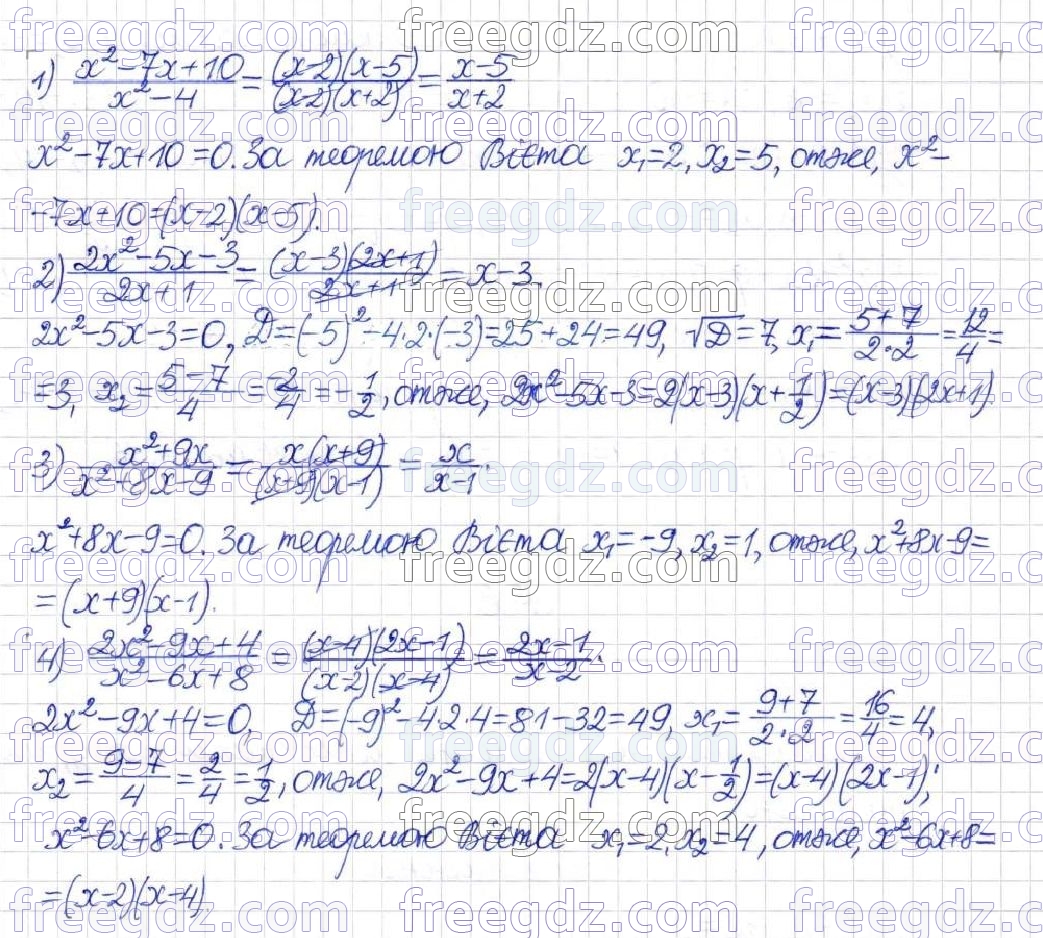 1) (x²-7x+10)/(x²-4) = ((x-2)(x-5))/((x-2)(x+2)) = (x-5)/(x+2)
x²-7x+10=0. За теоремою Вієта x₁=2, x₂=5, отже, x²-
-7x+10=(x-2)(x-5).
2) (2x²-5x-3)/(2x+1) = ((x-3)(2x+1))/(2x+1) = x-3.
2x²-5x-3=0, D=(-5)²-4·2·(-3)=25+24=49, √D=7, x₁=(5+7)/(2·2)=12/4=
=3, x₂=(5-7)/4=-2/4=-1/2, отже, 2x²-5x-3=2(x-3)(x+1/2)=(x-3)(2x+1)
3) (x²+9x)/(x²+8x-9) = (x(x+9))/((x+9)(x-1)) = x/(x-1).
x²+8x-9=0. За теоремою Вієта x₁=-9, x₂=1, отже, x²+8x-9=
=(x+9)(x-1).
4) (2x²-9x+4)/(x²-6x+8) = ((x-4)(2x-1))/((x-2)(x-4)) = (2x-1)/(x-2).
2x²-9x+4=0, D=(-9)²-4·2·4=81-32=49, x₁=(9+7)/(2·2)=16/4=4,
x₂=(9-7)/4=2/4=1/2, отже, 2x²-9x+4=2(x-4)(x-1/2)=(x-4)(2x-1);
x²-6x+8=0. За теоремою Вієта x₁=2, x₂=4, отже, x²-6x+8=
=(x-2)(x-4)
freegdz.com